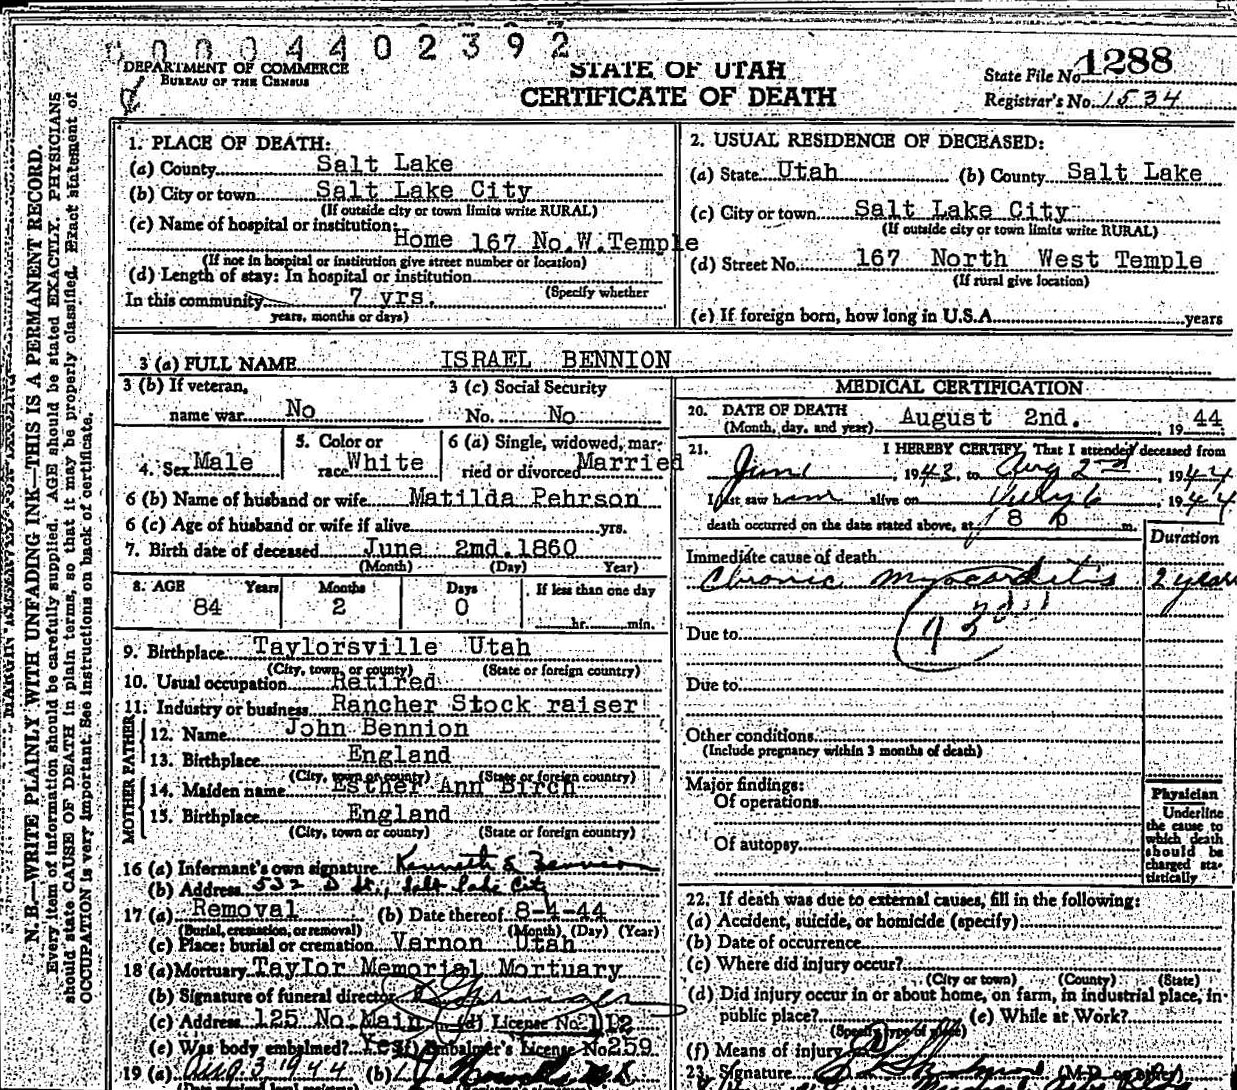 0 0 0 4 4 0 2 3 9 2
DEPARTMENT OF COMMERCE
BUREAU OF THE CENSUS
STATE OF UTAH
CERTIFICATE OF DEATH
State File No. 1288
Registrar's No. 1534
MARGIN RESERVED FOR BINDING
N. B.—WRITE PLAINLY WITH UNFADING INK—THIS IS A PERMANENT RECORD.
Every item of information should be carefully supplied. AGE should be stated EXACTLY. PHYSICIANS
should state CAUSE OF DEATH in plain terms, so that it may be properly classified. Exact statement of
OCCUPATION is very important. See instructions on back of certificate.
1. PLACE OF DEATH:
(a) County Salt Lake
(b) City or town Salt Lake City
(If outside city or town limits write RURAL)
(c) Name of hospital or institution:
Home 167 No.W.Temple
(If not in hospital or institution give street number or location)
(d) Length of stay: In hospital or institution
(Specify whether
In this community 7 yrs.
years, months or days)
2. USUAL RESIDENCE OF DECEASED:
(a) State Utah (b) County Salt Lake
(c) City or town Salt Lake City
(If outside city or town limits write RURAL)
(d) Street No. 167 North West Temple
(If rural give location)
(e) If foreign born, how long in U.S.A. years
3 (a) FULL NAME ISRAEL BENNION
3 (b) If veteran,
name war No
3 (c) Social Security
No. No
4. Sex Male
5. Color or
race White
6 (a) Single, widowed, mar-
ried or divorced Married
6 (b) Name of husband or wife Matilda Pehrson
6 (c) Age of husband or wife if alive yrs.
7. Birth date of deceased June 2md. 1860
(Month) (Day) Year)
8. AGE Years Months Days If less than one day
84 2 0 hr. min.
9. Birthplace Taylorsville Utah
(City, town, or county) (State or foreign country)
10. Usual occupation Retired
11. Industry or business Rancher Stock raiser
FATHER
12. Name John Bennion
13. Birthplace England
(City, town or county) (State or foreign country)
MOTHER
14. Maiden name Esther Ann Birch
15. Birthplace England
(City, town or county) (State or foreign country)
16 (a) Informant's own signature Kenneth S Bennion
(b) Address 532 D St., Salt Lake City
17 (a) Removal (b) Date thereof 8-4-44
(Burial, cremation, or removal) (Month) (Day) (Year)
(c) Place: burial or cremation Vernon Utah
18 (a) Mortuary Taylor Memorial Mortuary
(b) Signature of funeral director
(c) Address 125 No Main (d) License No. 112
(e) Was body embalmed? Yes (f) Embalmer's License No 259
19 (a) Aug 3 1944 (b)
MEDICAL CERTIFICATION
20. DATE OF DEATH
(Month, day, and year) August 2nd. 19 44
21. I HEREBY CERTIFY, That I attended deceased from
June, 1943, to Aug 2nd, 1944
I last saw him alive on July 6, 1944
death occurred on the date stated above, at 8 p m.
Duration
Immediate cause of death
Chronic myocarditis 2 years
Due to
Due to
Other conditions
(Include pregnancy within 3 months of death)
Major findings:
Of operations
Of autopsy
Physician
Underline
the cause to
which death
should be
charged sta-
tistically
22. If death was due to external causes, fill in the following:
(a) Accident, suicide, or homicide (specify)
(b) Date of occurrence
(c) Where did injury occur?
(City or town) (County) (State)
(d) Did injury occur in or about home, on farm, in industrial place, in
public place? (e) While at Work?
(Specify type of place)
(f) Means of injury
23. Signature (M.D. or other)